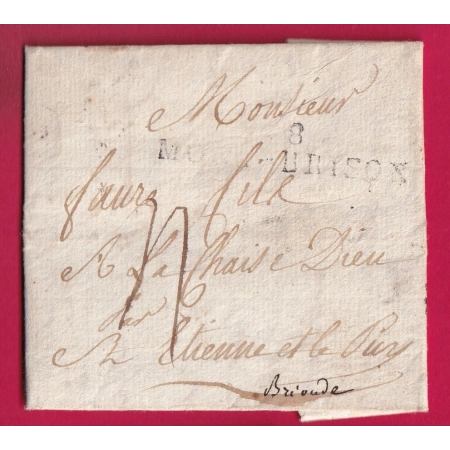 Monsieur
8
MO BRISON
faure fils
A La Chaise Dieu
par
St Etienne et le Puy
Brioude